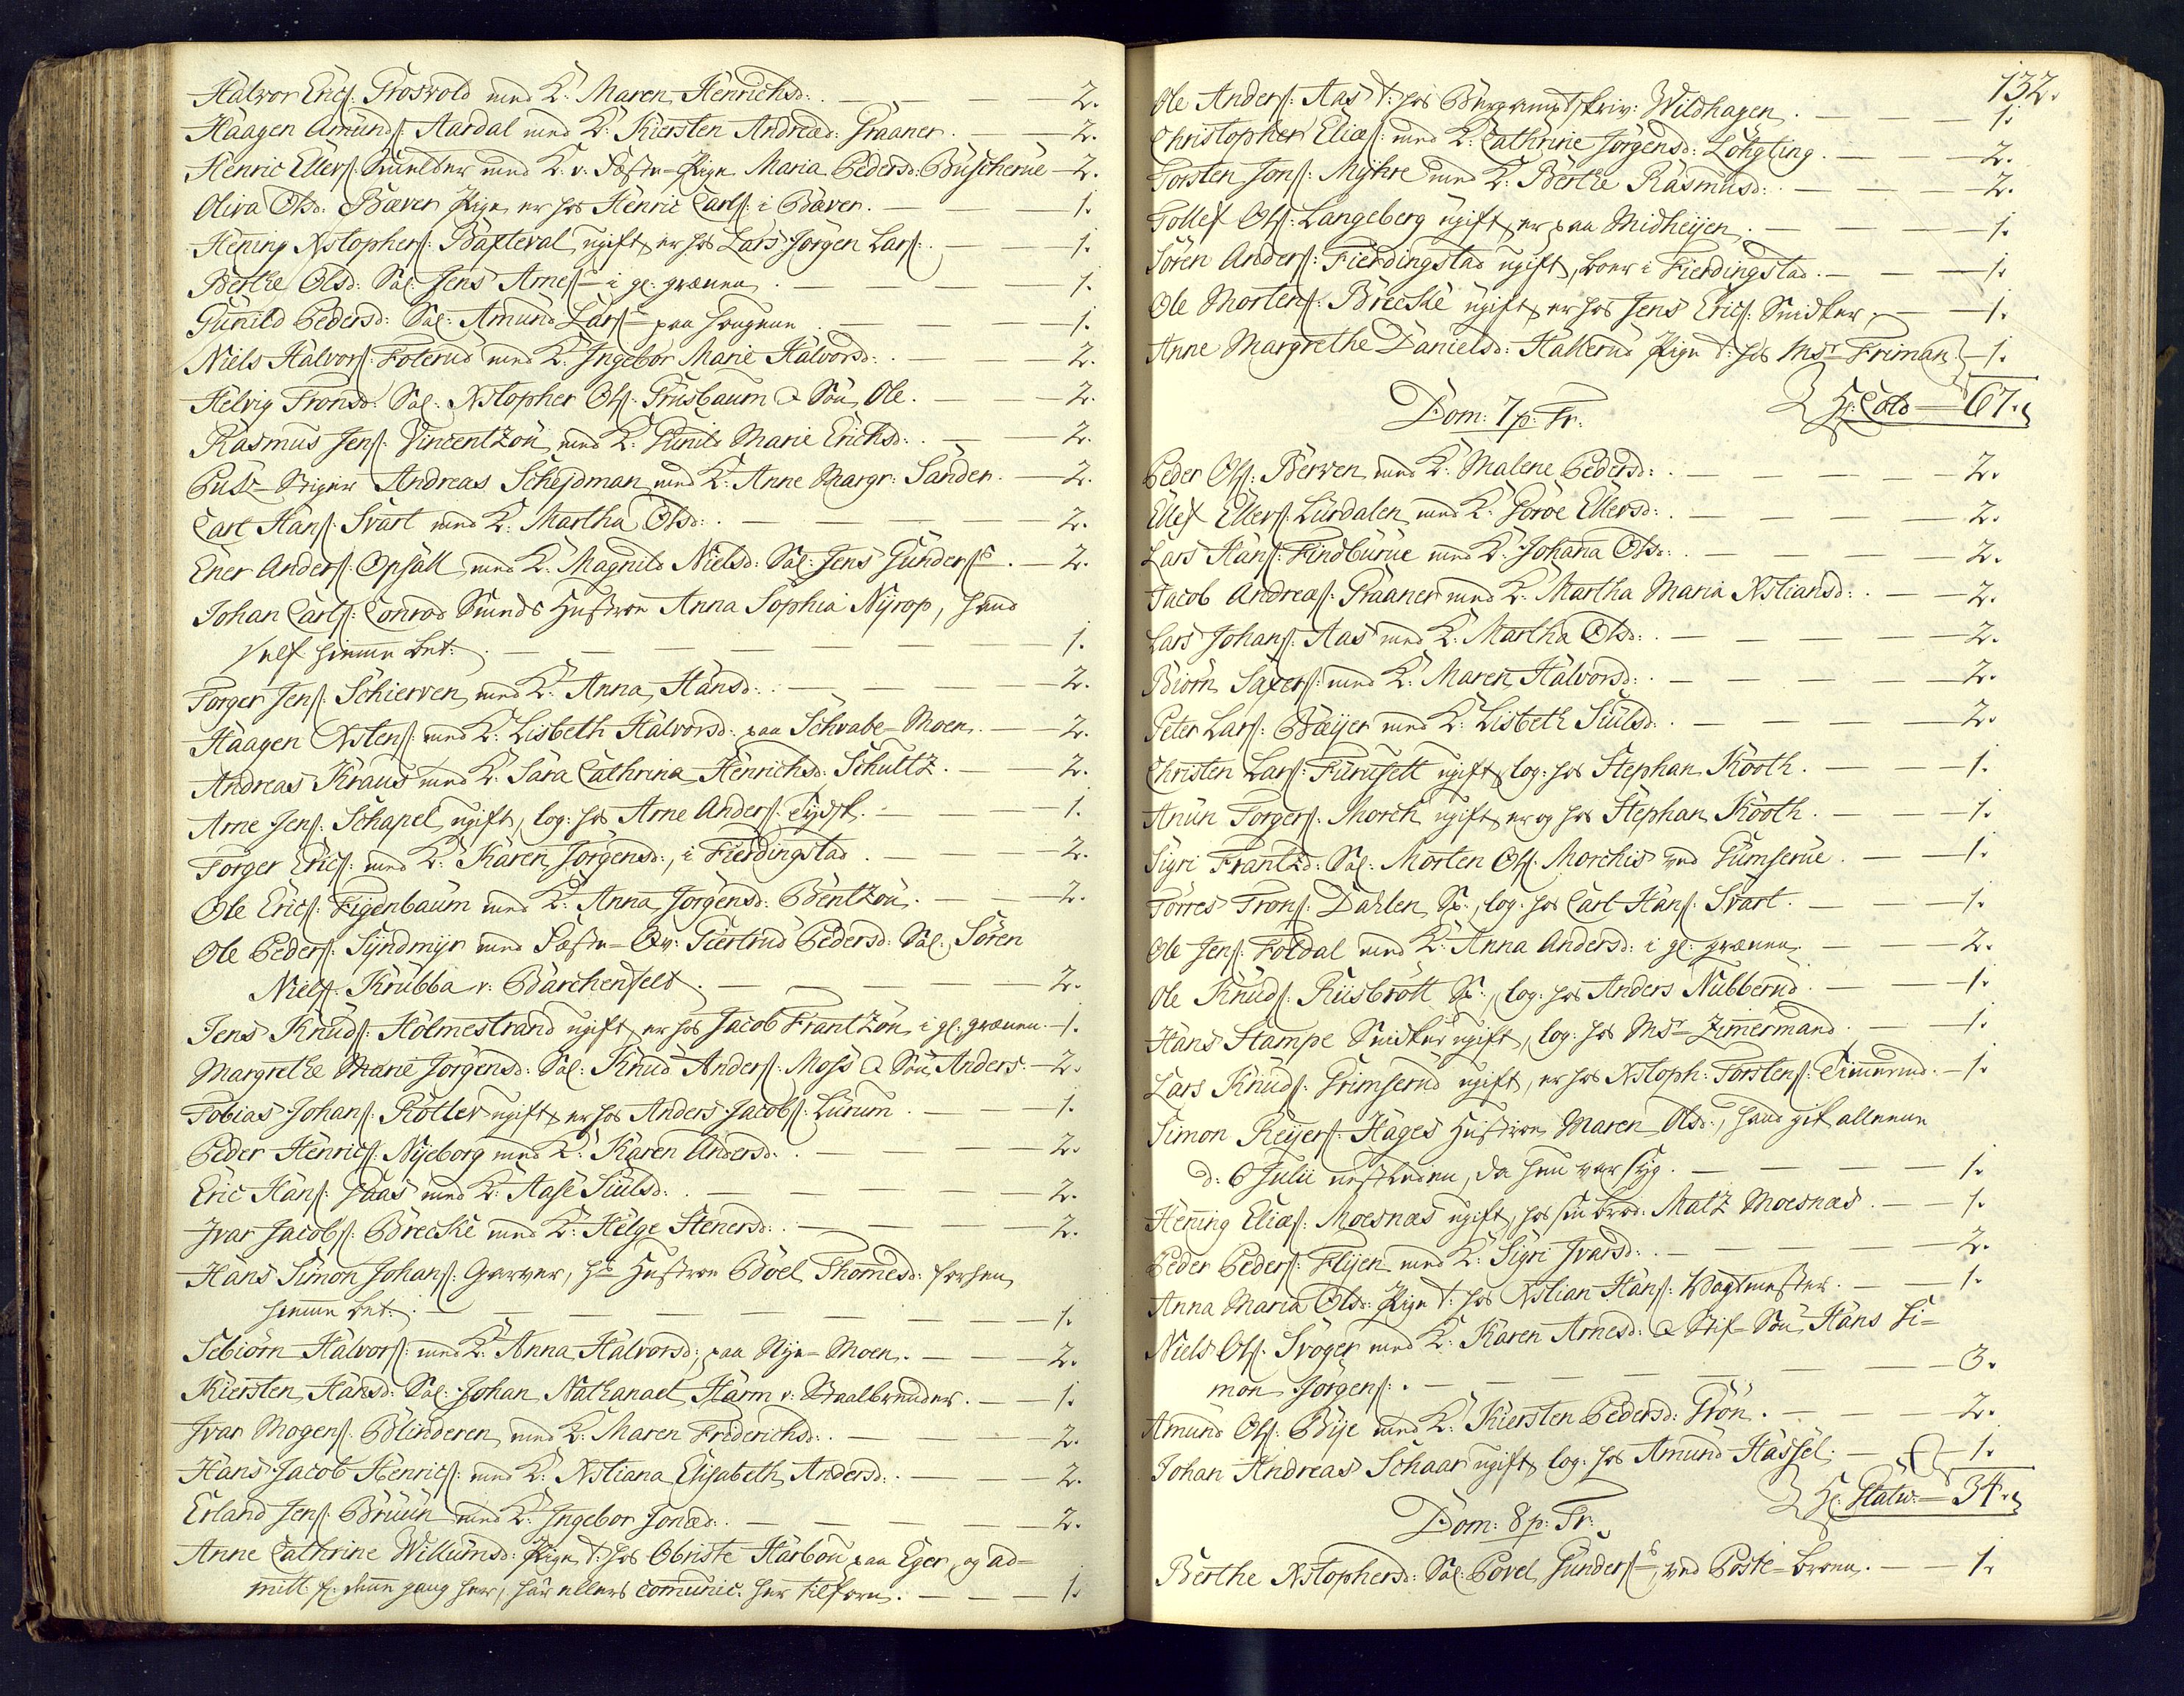 Halvor Erics: Trosvold med K: Maren Henrichsd: 2.
Haagen Amunds: Aardal med K: Kiersten Andread: Graaner. 2.
Henric Ellers: Smelder med K. v: Fæste-Pige Maria Pedersd: Buscherue 2.
Oliva Olsd: Bæver Pige er hos Henric Carls: i Bæver. 1.
Hening Xstophers: Baxteval ugift, er hos Lars Jörgen Lars: 1.
Berthe Olsd: Sal: Jens Arnes: i gl: grænen. 1.
Gunild Pedersd: Sal: Amund Lars: paa Haugene. 1.
Niels Halvors: Foterud med K: Ingebor Marie Halvorsd: 2.
Helvig Tronsd: Sal: Xstopher Ols: Grusbaum & Sön Ole. 2.
Rasmus Jens: Vincentzön med K: Gunild Marie Erichsd: 2.
Puk-Stiger Andreas Schejdman med K: Anne Margr: Sanden. 2.
Carl Hans: Svart med K: Martha Olsd: 2.
Ener Anders: Opsall med K: Magnild Nielsd: Sal: Jens Gunders: 2.
Johan Carls: Conrad Smeds Hustroe Anna Sophia Nyrop, hand
self hieme bet: 1.
Torger Jens: Schierven med K: Anna Hansd: 2.
Haagen Xstens: med K: Lisbeth Halvorsd: paa Schrabe-Moen. 2.
Andreas Kraus med K: Sara Cathrina Henrichsd: Schultz. 2.
Arne Jens: Schapel ugift, log: hos Arne Anders: Tydsk. 1.
Torger Erics: med K: Karen Jörgensd:, i Fierdingstad. 2.
Ole Erics: Figenbaum med K: Anna Jörgensd: Bentzön. 2.
Ole Peders: Syndmyr med Fæste-Qv: Giertrud Pedersd: Sal: Sören
Niels: Krubba v: Barchenfelt. 2.
Jens Knuds: Holmestrand ugift, er hos Jacob Frantzön i gl: grænen. 1.
Margrethe Marie Jörgensd: Sal: Knud Anders: Moss & Sön Anders. 2.
Tobias Johans: Rotter ugift, er hos Anders Jacobs: Lurum. 1.
Peder Henrics: Nyeborg med K: Karen Andersd: 2.
Eric Hans: Haas med K: Aase Siulsd: 2.
Ivar Jacobs: Brecke med K: Helge Stenersd: 2.
Hans Simon Johans: Garver, Hs Hustroe Böel Thomesd: forhen
hieme bet: 1.
Tebiörn Halvors: med K: Anna Halvorsd: paa Nye-Moen. 2.
Kiersten Hansd: Sal: Johan Nathanael Harm v: Staalbrender. 1.
Ivar Mogens: Blinderen med K: Maren Friderichsd: 2.
Hans Jacob Henrics: med K: Xstiana Elisabeth Andersd: 2.
Erland Jens: Bruun med K: Ingebor Jonæd: 2.
Anne Cathrine Willumsd: Pige t: hos Obriste Harbou paa Eger, og ad=
mitt. f: denne gang her, har ellers comunic: her tilforn. 1.
132.
Ole Anders: Aas t: hos Bergampt skriv: Wildhagen. 1.
Christopher Elias: med K: Cathrine Jörgensd: Löhgting. 2.
Torsten Jons: Myhre med K: Berthe Rasmusd: 2.
Tollef Ols: Langeberg ugift, er paa Midheijen. 1.
Sören Anders: Fierdingstad ugift, boer i Fierdingstad. 1.
Ole Mortens: Brecke ugift, er hos Jens Erics: Snidker. 1.
Anne Margrethe Danielsd: Hallerud Pige t: hos Msr Friman. 1.
Hr: Cold 67.
Dom: 7 p: Tr:
Peder Ols: Berven med K: Malene Pedersd: 2.
Ellef Ellefs: Lurdalen med K: Goroe Ellefsd: 2.
Lars Hans: Findburue med K: Johana Olsd: 2.
Jacob Andreas: Graaner med K: Martha Maria Xstiansd: 2.
Lars Johans: Aas med K: Martha Olsd: 2.
Biörn Saxers: med K: Maren Halvorsd: 2.
Peter Lars: Bæijer med K: Lisbeth Siulsd: 2.
Christen Lars: Furusett ugift, log: hos Stephan Kooth. 1.
Anun Torgers: Morch ugift, er og hos Stephan Kooth. 1.
Sigri Frantzd: Sal: Morten Ols: Morchis ved Gumserue. 1.
Torres Trons: Dahlen S:, log: hos Carl Hans: Svart. 1.
Ole Jens: Foldal med K: Anna Andersd: i gl: grænen. 2.
Ole Knuds: Riisbrött S:, log: hos Anders Nubberud. 1.
Hans Stampe Snidker ugift, log: hos Msr Zimmermand. 1.
Lars Knuds: Grimserud ugift, er hos Xstoph: Torstens: Timerud. 1.
Simon Reijers: Hages Hustroe Maren Olsd:, hand gik allene
d: 6 Julii nestleden, da hun var syg. 1.
Hening Elias: Moesnæs ugift, hos sin brod: Matz Moesnæs. 1.
Peder Peders: Flijen med K: Sigri Ivarsd: 2.
Anna Maria Olsd: Pige t: hos Xstian Hans: Wagtmester. 1.
Niels Ols: Svoger med K: Karen Arnesd: & Stif-Sön Hans Si=
mon Jörgens: 3.
Amund Ols: Bije med K: Kiersten Pedersd: Grön. 2.
Johan Andreas Schaar ugift, log: hos Amund Hassel. 1.
Hr: Statw: 34.
Dom: 8 p: Tr:
Berthe Xstophersd: Sal: Povel Gunders: ved Poste-broen. 1.